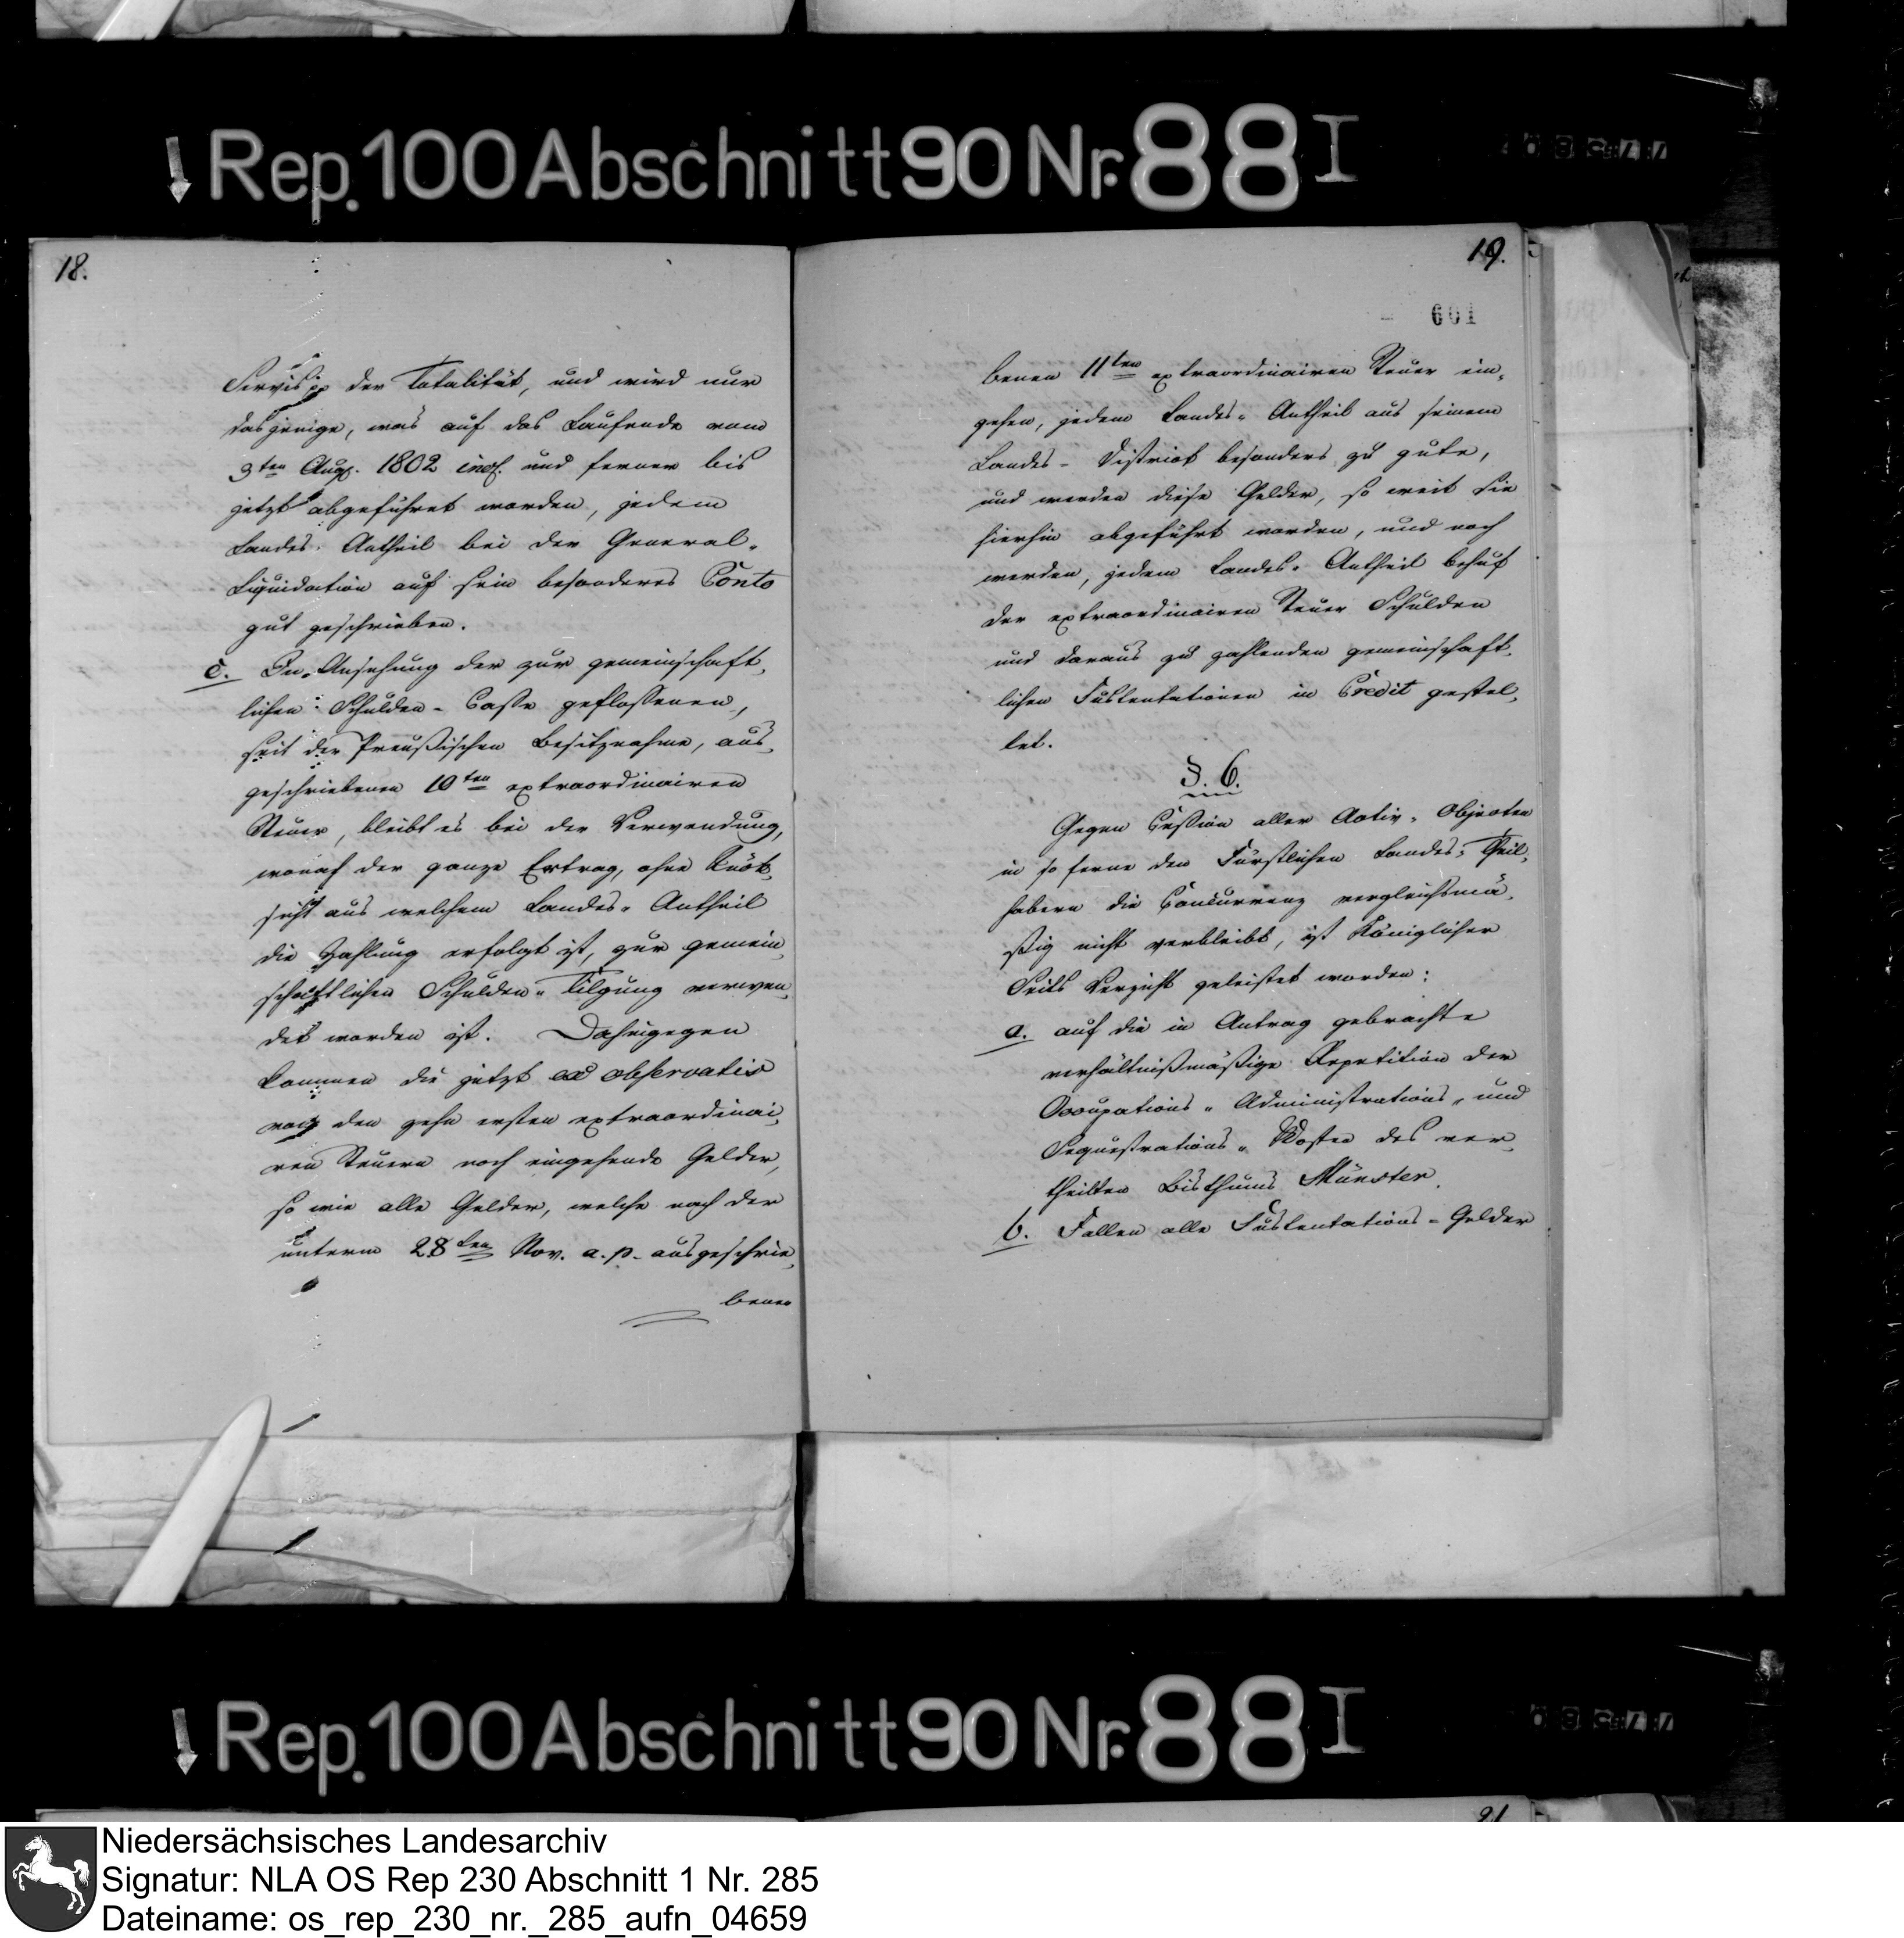 Rep. 100 Abschnitt 90 Nr. 88 I
18.
Servis pp der Totalität, und wird nur
dasjenige, was auf das Laufende vom
3ten Aug. 1802 incl. und ferner bis
jetzt abgeführet worden, jedem
Landes-Antheil bei der General-
Liquidation auf sein besonderes Conto
gut geschrieben.
c. In Ansehung der zur gemeinschaft-
lichen Schulden-Casse geflossenen,
seit der Preußischen Besitznahme, aus-
geschriebenen 10ten extraordinairen
Steuer, bleibt es bei der Verwendung,
wonach der ganze Ertrag, ohne Rück-
sicht aus welchem Landes-Antheil
die Zahlung erfolgt ist, zur gemein-
schaftlichen Schulden-Tilgung verwen-
det worden ist. Dahingegen
kommen die jetzt ex observatis
von den zehn ersten extraordinai-
ren Steuern noch eingehende Gelder,
so wie alle Gelder, welche nach der
unterm 28ten Nov. a. p. ausgeschrie-
benen
19.
601
benen 11ten extraordinairen Steuer ein-
gehen, jedem Landes-Antheil aus seinem
Landes-District besonders zu gute,
und werden diese Gelder, so weit sie
hierhin abgeführt worden, und noch
werden, jedem Landes-Antheil behuf
der extraordinairen Steuer Schulden
und daraus zu zahlenden gemeinschaft-
lichen Sustentationen in Credit gestel-
let.
§. 6.
Gegen Cession aller Activ-Objecten
in so ferne den Fürstlichen Landes-Theil-
habern die Concurrenz vergleichsmä-
ßig nicht verbleibt, ist Königlicher
Seits Verzicht geleistet worden:
a. auf die in Antrag gebrachte
verhältnißmäßige Repetition der
Occupations-Administrations- und
Sequestrations-Kosten des ver-
theilten Bisthums Münster.
b. Fallen alle Sustentations-Gelder
Rep. 100 Abschnitt 90 Nr. 88 I
21
Niedersächsisches Landesarchiv
Signatur: NLA OS Rep 230 Abschnitt 1 Nr. 285
Dateiname: os_rep_230_nr._285_aufn_04659